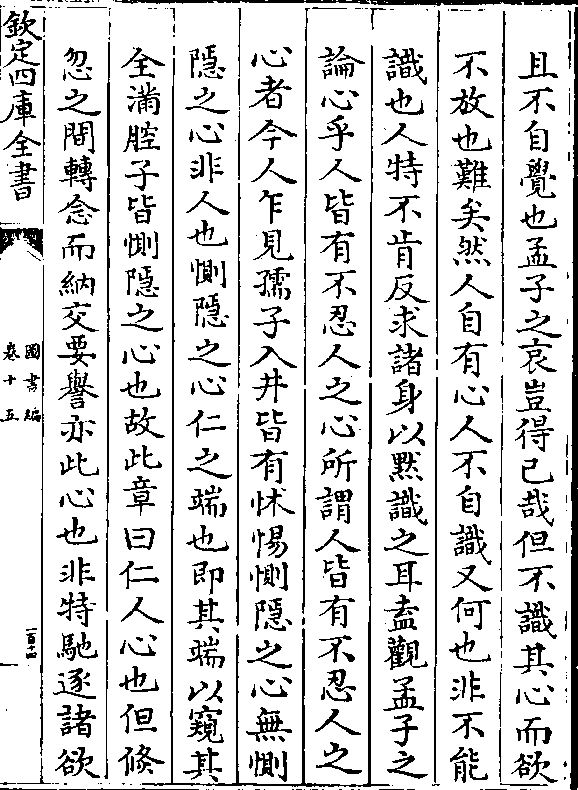 且不自覺也孟子之哀豈得已哉但不識其心而欲
不放也難矣然人自有心人不自識又何也非不能
識也人特不肯反求諸身以黙識之耳盍觀孟子之
論心乎人皆有不忍人之心所謂人皆有不忍人之
心者今人乍見孺子入井皆有怵惕惻隱之心無惻
隱之心非人也惻隱之心仁之端也即其端以窺其
全滿腔子皆惻隱之心也故此章曰仁人心也但倏
忽之間轉念而納交要譽亦此心也非特馳逐諸欲
欽定四庫全書
圖書編
卷十五